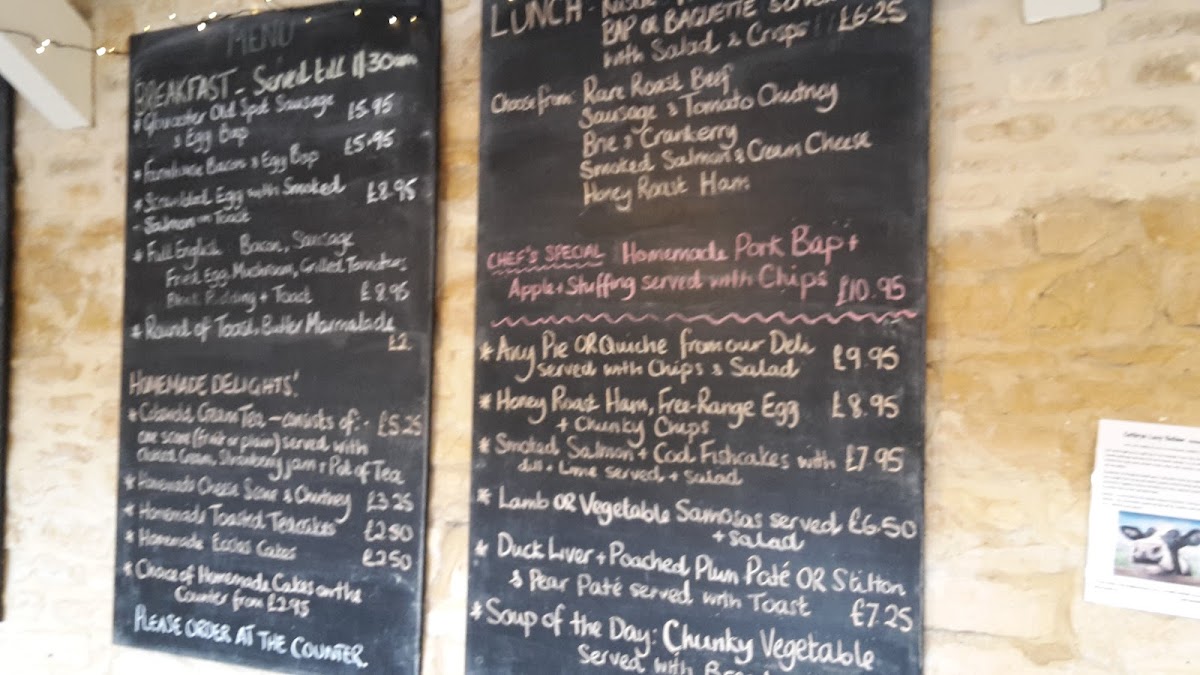 MENU
BREAKFAST - Served till 11/30am
* Gloucester Old Spot Sausage
& Egg Bap £5.95
* Farmhouse Bacon & Egg Bap £5.95
* Scrambled Egg with Smoked
- Salmon on Toast £8.95
* Full English Bacon, Sausage
Fried Egg, Mushroom, Grilled Tomatoes,
Black Pudding + Toast £8.95
* Round of Toast, Butter Marmalade
£2.
HOMEMADE DELIGHTS!
* Cotswold Cream Tea - consists of:- £5.25
one scone (fruit or plain) served with
Clotted Cream, Strawberry jam + Pot of Tea
* Homemade Cheese Scone & Chutney £3.25
* Homemade Toasted Teacakes £2.50
* Homemade Eccles Cakes £2.50
* Choice of Homemade Cakes on the
Counter from £2.95
PLEASE ORDER AT THE COUNTER.
LUNCH -
BAP OR BAGUETTE
with Salad & Crisps!! £6.25
Choose from: Rare Roast Beef
Sausage & Tomato Chutney
Brie & Cranberry
Smoked Salmon & Cream Cheese
Honey Roast Ham
CHEF'S SPECIAL Homemade Pork Bap +
Apple + Stuffing served with Chips £10.95
* Any Pie OR Quiche from our Deli
served with Chips & Salad £9.95
* Honey Roast Ham, Free-Range Egg £8.95
+ Chunky Chips
* Smoked Salmon + Cod Fishcakes with £7.95
dill + Lime served + Salad
* Lamb OR Vegetable Samosas served £6.50
+ Salad
* Duck Liver + Poached Plum Paté OR Stilton
& Pear Paté served with Toast £7.25
* Soup of the Day: Chunky Vegetable
Served with